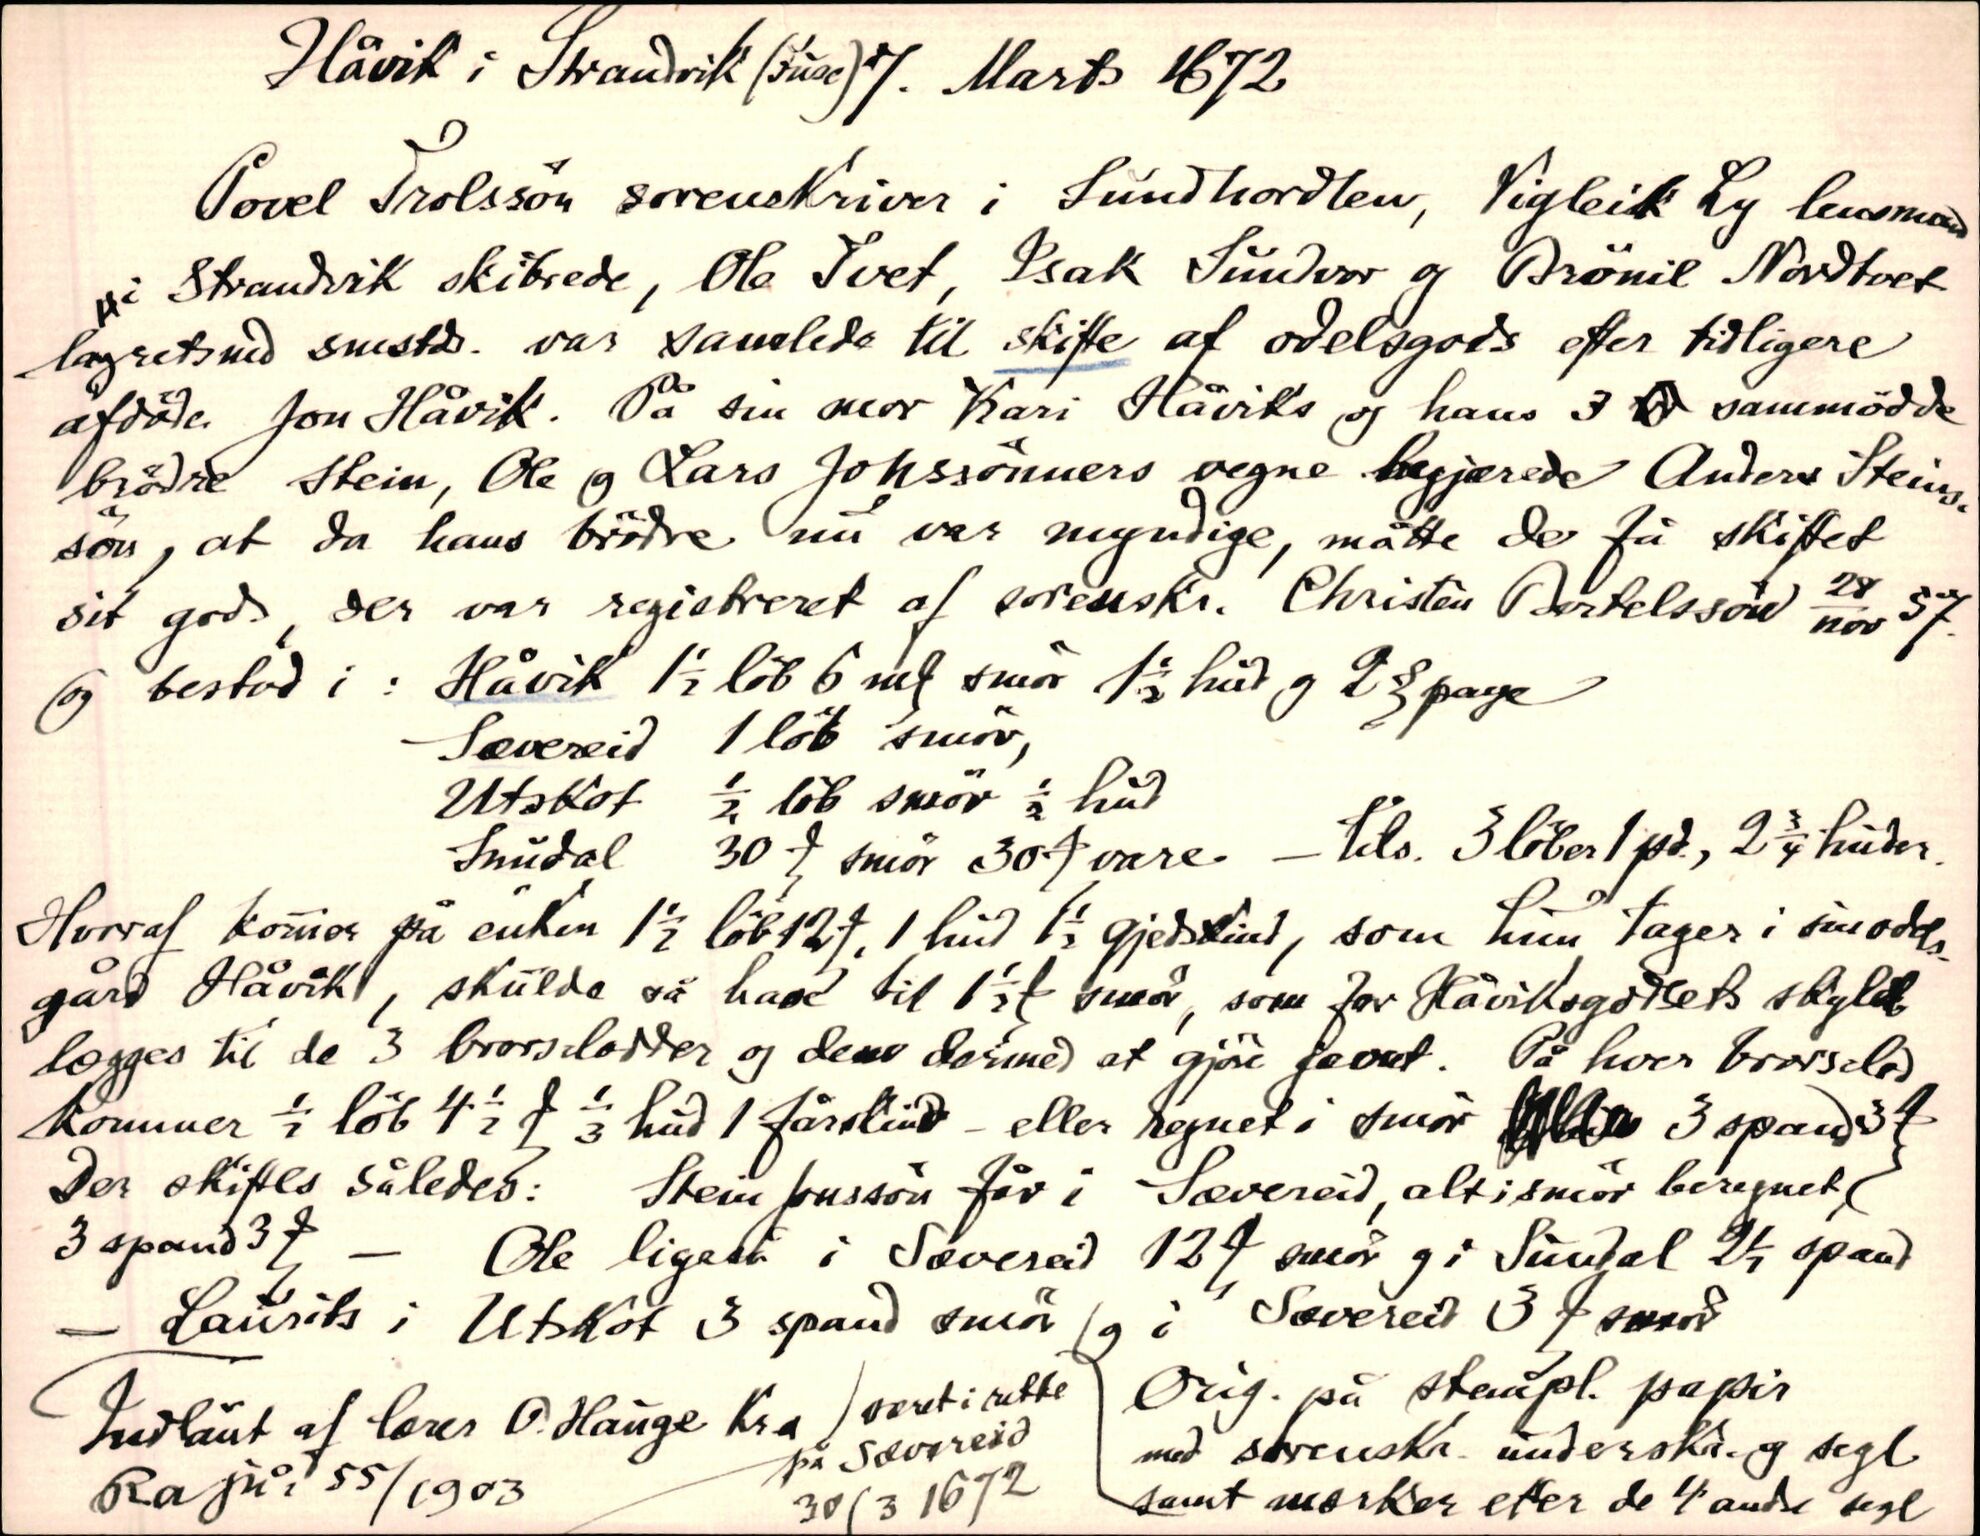 Håvik i Strandvik (Fuse) 7. Marts 1672
Povel Trolssön sorenskriver i Sundhordlen, Vigleik Ly lensmand
i Strandvik skibrede, Ole Tvet, Isak Sundvor og Brönil Nordtvet
lagretsmd smstds. var samlede til skifte af odelsgods efter tidligere
afdöde Jon Håvik. På sin mor Kari Håviks og hans 3 sammödde
brödre Stein, Ole og Lars Johssönners vegne begjærede Anders Steins-
sön, at da hans brödre nu var myndige, måtte de få skiftet
sit gods, der var registreret af sorenskr. Christen Bertelssön 28/nov 57.
og bestod i : Håvik 1½ löb 6 mk smör 1½ hud og 2 page
Sævereid 1 löb smör,
Utskot ½ löb smör ½ hud
Sundal 30 ℔ smör 30 ℔ vare. — tils. 3 löber 1 pd., 2¾ huder.
Hvoraf kommer på enken 1½ löb 12 ℔, 1 hud 1½ gjedskind, som hun tager i sin odels-
gård Håvik, skulde så have til 1½ ℔ smör, som for Håviksgodsets skyld
lægges til de 3 brorslodder og dem dermed at gjöre jevnt. På hver brorslod
kommer ½ löb 4½ ℔ ⅓ hud 1 fårskind – eller regnet i smör 3 spand 3 ℔
Der skiftes således: Stein Jonssön får i Sævereid, alt i smör beregnet,
3 spand 3 ℔ — Ole ligeså i Sævereid 12 ℔ smör og i Sundal 2½ spand
— Laurits i Utskot 3 spand smör og i Sævereid 3 ℔ smör
Indlånt af lærer O. Hauge Kra
Ra jnr 55/1903
været i rette
på Sævereid
30/3 1672
Orig. på stempl. papir
med sorenskr. underskr. og segl
samt mærker efter de 4 andre segl